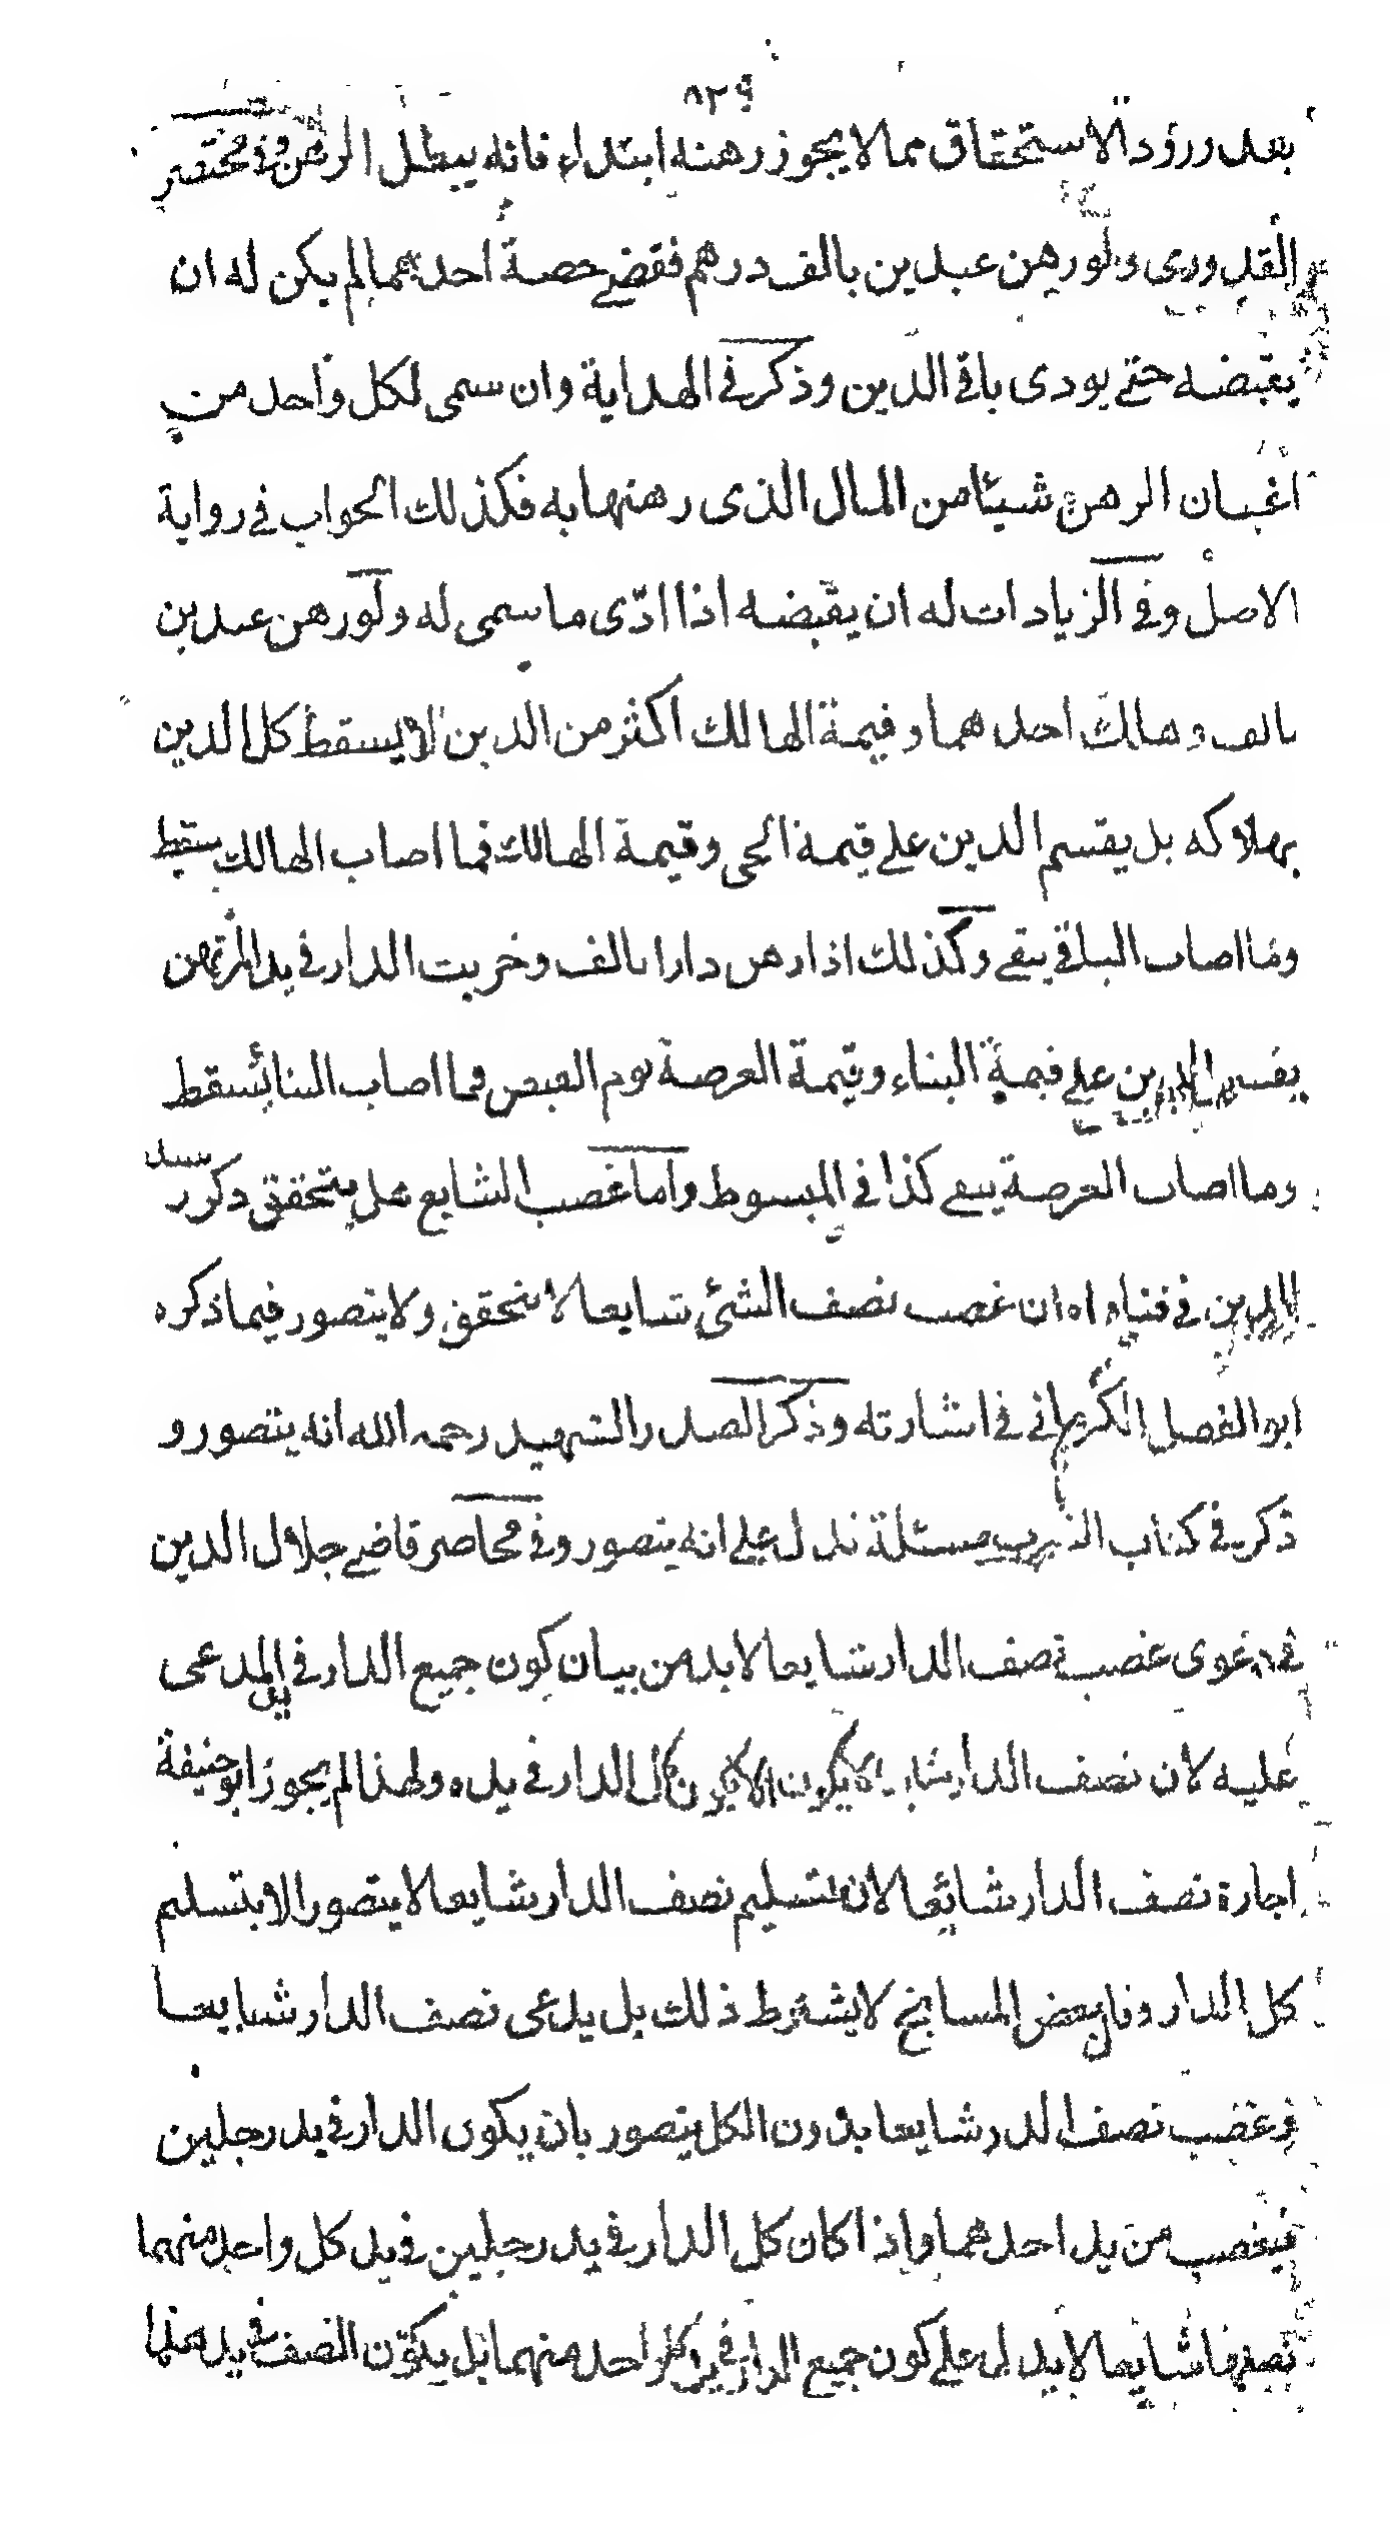 ٨٢٩
بعد ورود الاستحقاق مما لا يجوز رهنه ابتداء فانه يبطل الرهن وفي مختصر
القدوري ولو رهن عبدين بالف درهم فقضى حصة احدهما لم يكن له ان
يقبضه حتى يودى باقي الدين وذكر في الهداية وان سمى لكل واحد من
اعيان الرهن شيئا من المال الذى رهنها به فكذلك الجواب في رواية
الاصل وفي الزيادات له ان يقبضه اذا ادّى ما سمى له ولو رهن عبدين
بالف وهالك احدهما وقيمة الهالك اكثر من الدين لا يسقط كل الدين
بهلاكه بل يقسم الدين على قيمة الحى وقيمة الهالك فما اصاب الهالك سقط
وما اصاب الباقي يبقى وكذلك اذا رهن دارا بالف وخربت الدار في يد المرتهن
يقسم الدين على قيمة البناء وقيمة العرصة يوم القبض فما اصاب البنا يسقط
وما اصاب العرصة يبقى كذا في المبسوط واما غصب الشايع هل يتحقق ذكر رشيد
الدين في فتياه ان غصب نصف الشئ شايعا لا يتحقق ولا يتصور فيما ذكره
ابو الفضل الكرماني في اشارته وذكر الصدر الشهيد رحمه الله انه يتصور و
ذكر في كتاب مسئلة تدل على انه يتصور وفي محاضر قاضي جلال الدين
في دعوى غصب نصف الدار شايعا لا بد من بيان كون جميع الدار في يد المدعى
عليه لان نصف الدار شايعا لا يكون الا بكون كل الدار في يده ولهذا لم يجوز ابو حنيفة
اجارة نصف الدار شائعا لان تسليم نصف الدار شايعا لا يتصور الا بتسليم
كل الدار وقال بعض المسايخ لا يشترط ذلك بل يدعى نصف الدار شايعا
وغصب نصف الدر شايعا بدون الكل يتصور بان يكون الدار في يد رجلين
فيغصب من يد احدهما واذا كان كل الدار في يد رجلين في يد كل واحد منهما
نصفها شايعا لا يدل على كون جميع الدار في يد كل واحد منهما بل يكون النصف في يد هذا